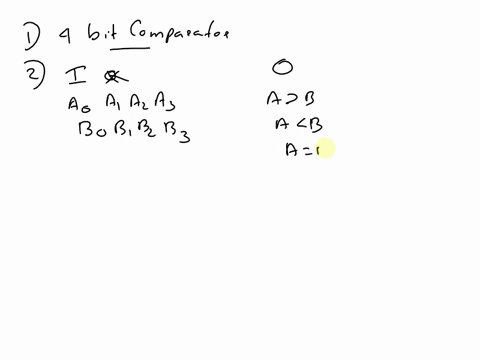 1) 4 bit Comparator
2) I O
A0 A1 A2 A3 A > B
B0 B1 B2 B3 A < B
A =